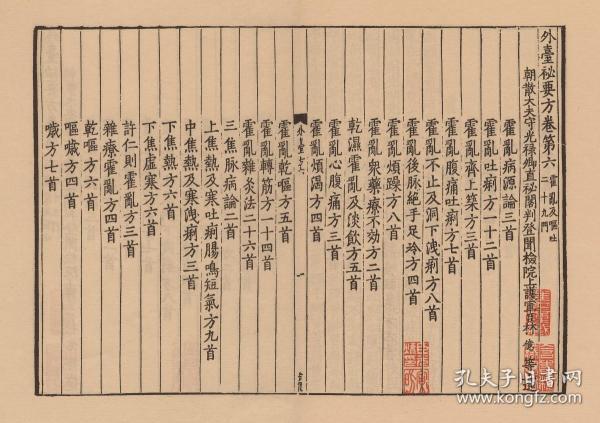 外臺祕要方卷第六 霍亂及嘔吐
三十九門
朝散大夫守光祿卿直祕閣判登聞檢院上護軍臣林億等
霍亂病源論三首
霍亂吐痢方一十二首
霍亂齊上築方三首
霍亂腹痛吐痢方七首
霍亂不止及洞下洩痢方八首
霍亂後脉絕手足冷方四首
霍亂煩躁方八首
霍亂衆藥療不効方二首
乾濕霍亂及淡飲方五首
霍亂心腹痛方三首
霍亂煩渴方四首
外臺六
一
霍亂乾嘔方五首
霍亂轉筋方一十四首
霍亂雜灸法二十六首
三焦脉病論二首
上焦熱及寒吐痢腸鳴短氣方九首
中焦熱及寒洩痢方三首
下焦熱方六首
下焦虛寒方六首
許仁則霍亂方三首
雜療霍亂方四首
乾嘔方六首
嘔噦方四首
噦方七首
孔夫子旧书网
www.kongfz.com